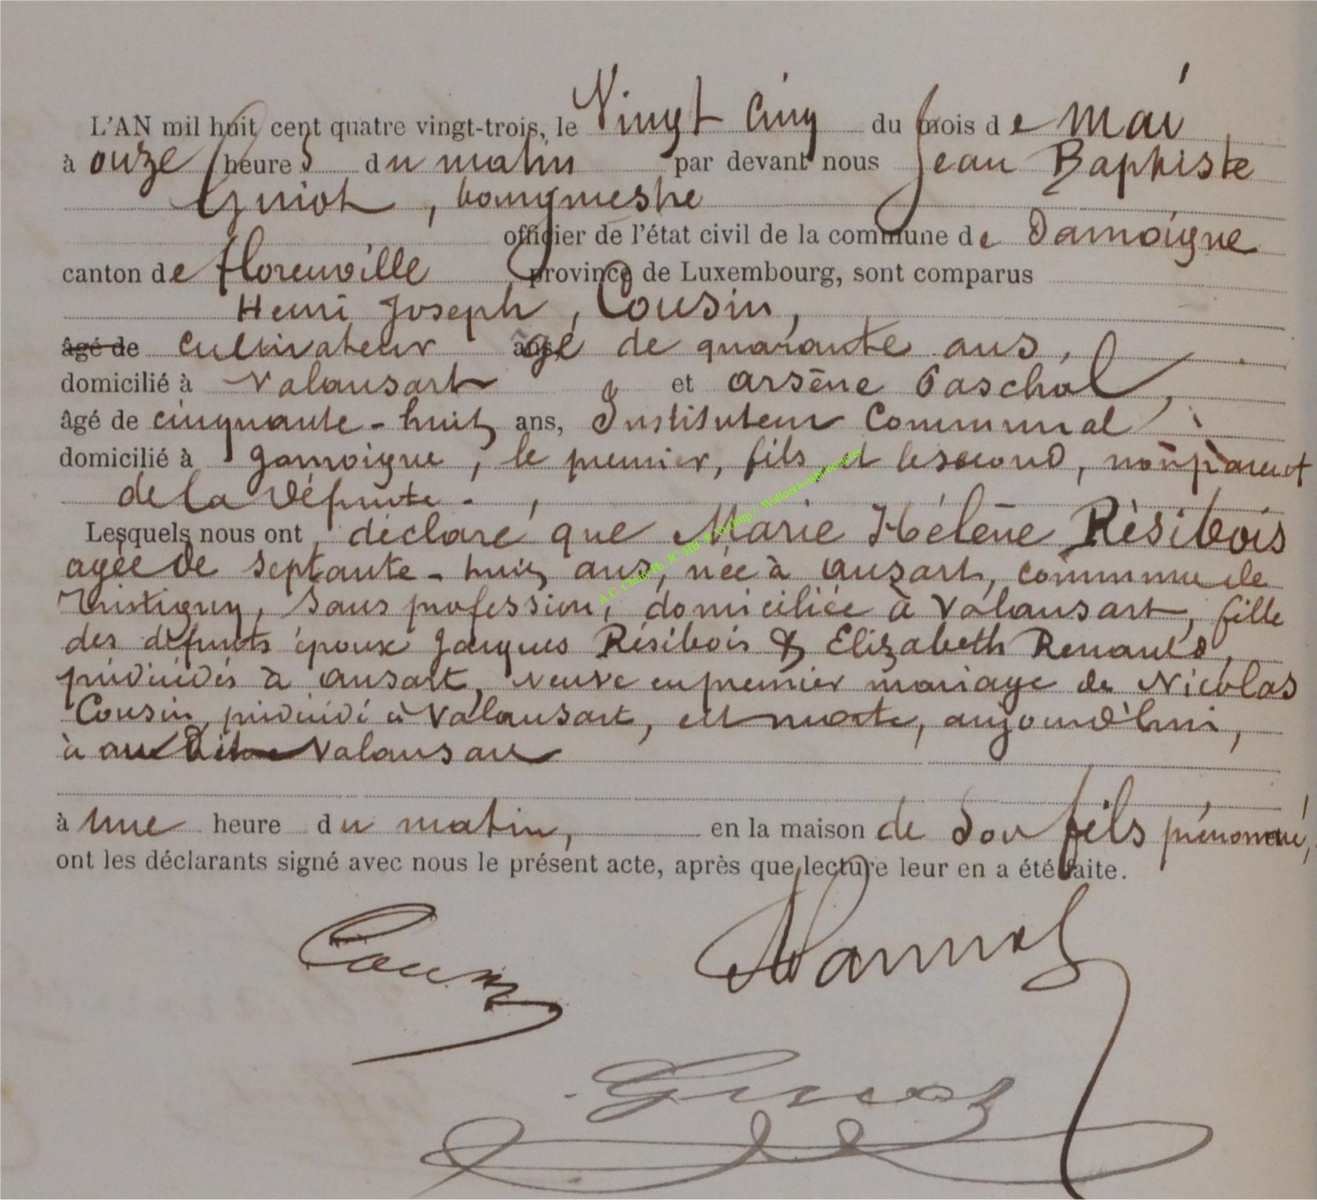 L'AN mil huit cent quatre vingt-trois, le Vingt Cinq du mois de Mai
à onze heures du matin par devant nous Jean Baptiste
Guiot, bourgmestre
officier de l'état civil de la commune de Jamoigne
canton de florenville province de Luxembourg, sont comparus
Henri Joseph, Cousin,
âgé de cultivateur âgé de quarante ans,
domicilié à Valansart et Arsène Paschal,
âgé de cinquante-huit ans, Instituteur Communal
domicilié à Jamoigne, le premier, fils et le second, non parent
de la défunte.
Lesquels nous ont déclaré que Marie Hélène Résibois
agée de septante-huit ans, née à ansart, commune de
tintigny, sans profession, domiciliée à Valansart, fille
des défunts époux Jacques Résibois & Elizabeth Renauld,
y décédés à ansart, veuve en premier mariage de Nicolas
Cousin, décédé à Valansart, est morte, aujourd'hui,
à au dit Valansart
à une heure du matin, en la maison de son fils prénommé,
ont les déclarants signé avec nous le présent acte, après que lecture leur en a été faite.
Cousin
Guiot